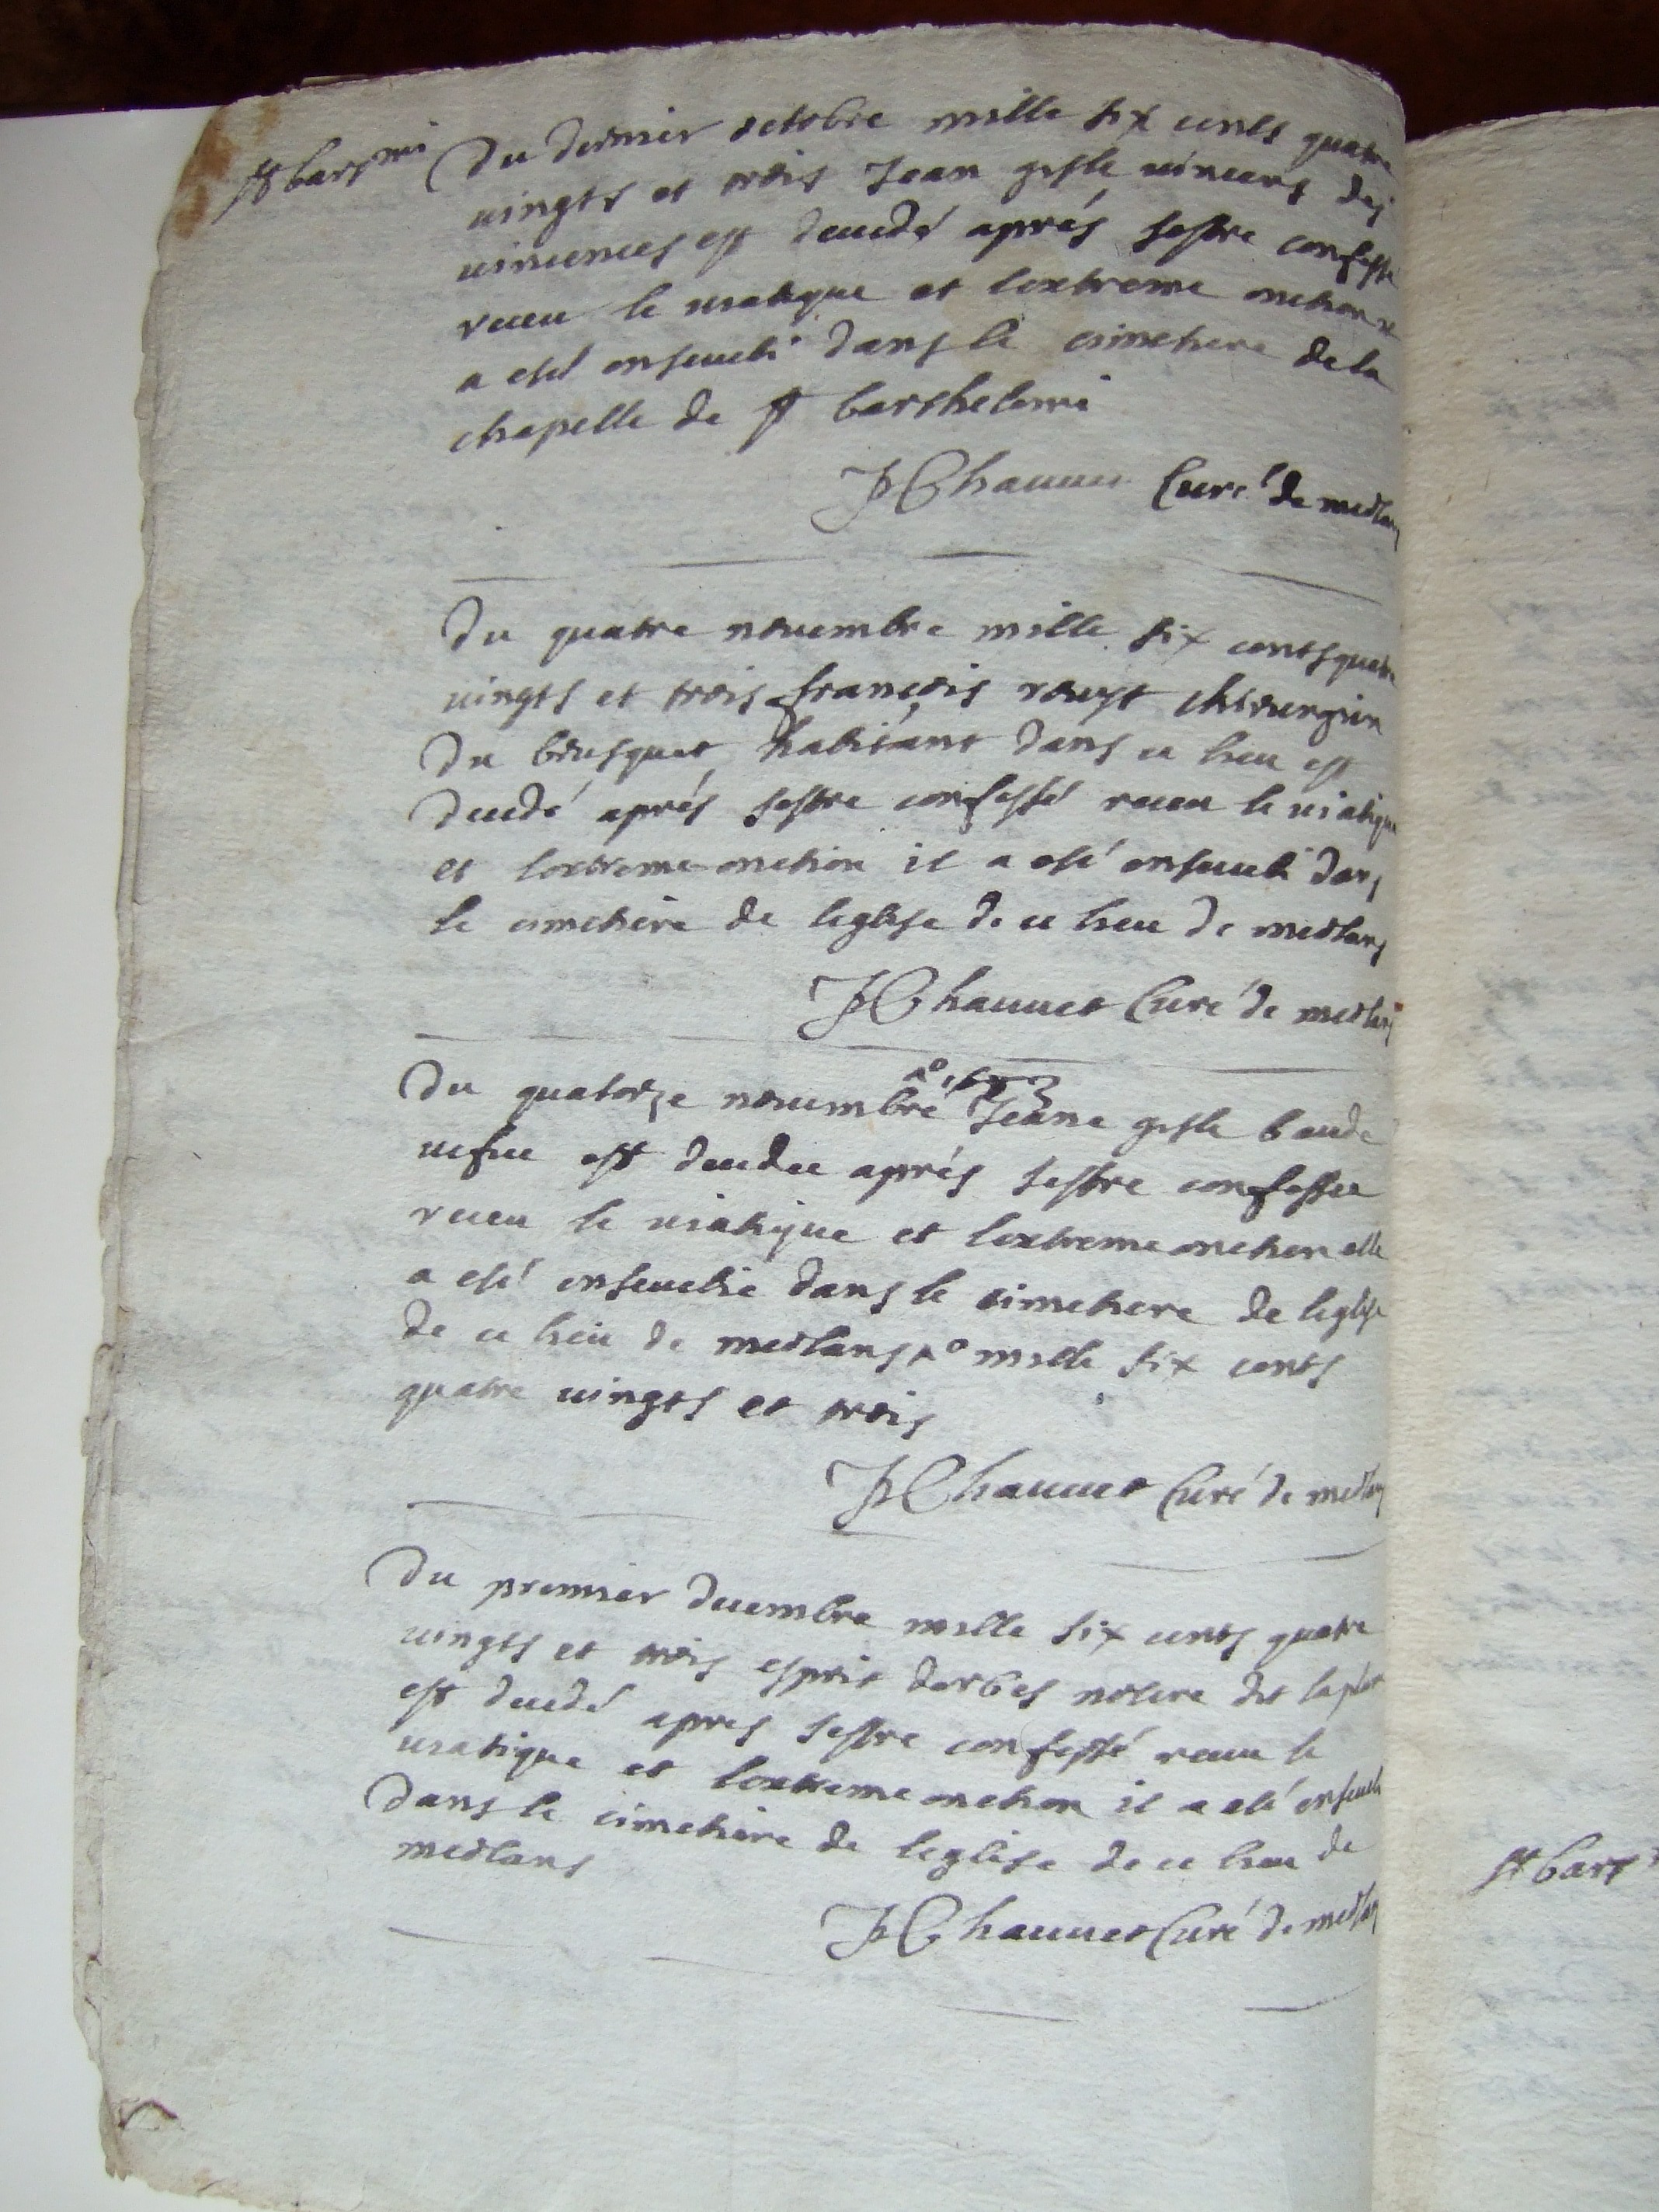 St bar^mi
Du dernier octobre mille six cents quatre
vingts et trois Jean gesle vincens des
vincences est decedé aprés sestre confessé
receu le viatique et lextreme onction
a esté enseveli dans le cimetiere de la
chapelle de St barthelemi
JChauvet Curé de meolans
Du quatre novembre mille six cents quatre
vingts et trois françois roust chirurgien
du brusquet habitant dans ce lieu est
decedé aprés sestre confessé receu le viatique
et lextreme onction il a esté enseveli dans
le cimetiere de leglise de ce lieu de meolans
JChauvet Curé de meolans
Du quatorze novembre Jeane gesle baude
vefve est decedee aprés sestre confessee
receu le viatique et lextreme onction elle
a esté ensevelie dans le cimetiere de leglise
de ce lieu de meolans Ao mille six cents
quatre vingts et trois
JChauvet Curé de meolans
Du premier decembre mille six cents quatre
vingts et trois esprit derbes notere dit
est decedé apres sestre confessé receu le
viatique et lextreme onction il a esté enseveli
dans le cimetiere de leglise de ce lieu de
meolans
JChauvet Curé de meolans
St bart